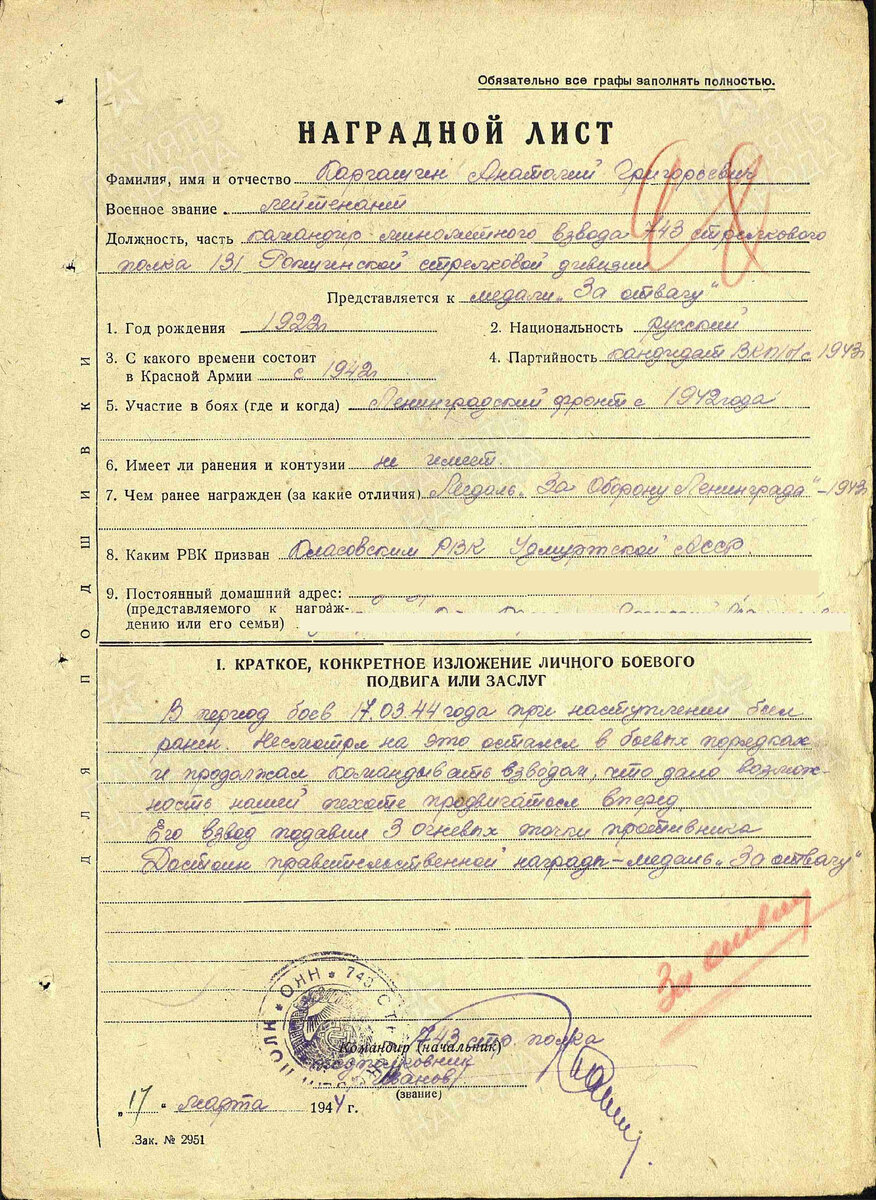 Обязательно все графы заполнять полностью.
НАГРАДНОЙ ЛИСТ
Фамилия, имя и отчество Каргашин Анатолий Григорьевич
Военное звание лейтенант
Должность, часть командир минометного взвода 743 стрелкового
полка 131 Ропшинской стрелковой дивизии
Представляется к медали „За отвагу"
1. Год рождения 1923г
2. Национальность русский
3. С какого времени состоит
в Красной Армии с 1942г
4. Партийность кандидат ВКП/б/ с 1943г
5. Участие в боях (где и когда) Ленинградский фронт с 1942 года
6. Имеет ли ранения и контузии не имеет.
7. Чем ранее награжден (за какие отличия) Медаль „За Оборону Ленинграда" - 1943г
8. Каким РВК призван Глазовским РВК Удмуртской АССР.
9. Постоянный домашний адрес:
(представляемого к награж-
дению или его семьи)
I. КРАТКОЕ, КОНКРЕТНОЕ ИЗЛОЖЕНИЕ ЛИЧНОГО БОЕВОГО
ПОДВИГА ИЛИ ЗАСЛУГ
В период боев 17.03.44 года при наступлении был
ранен. Несмотря на это остался в боевых порядках
и продолжал командывать взводом, что дало возмож-
ность нашей пехоте продвигаться вперед
Его взвод подавил 3 огневых точки противника
Достоин правительственной награды - медаль „За отвагу"
За отвагу
743 стр. полка
Командир (начальник)
подполковник
/Иванов/
(звание)
„17" марта 1944 г.
Зак. № 2951
ДЛЯ ПОДШИВКИ
НКО * 743 СТР
ПОЛК